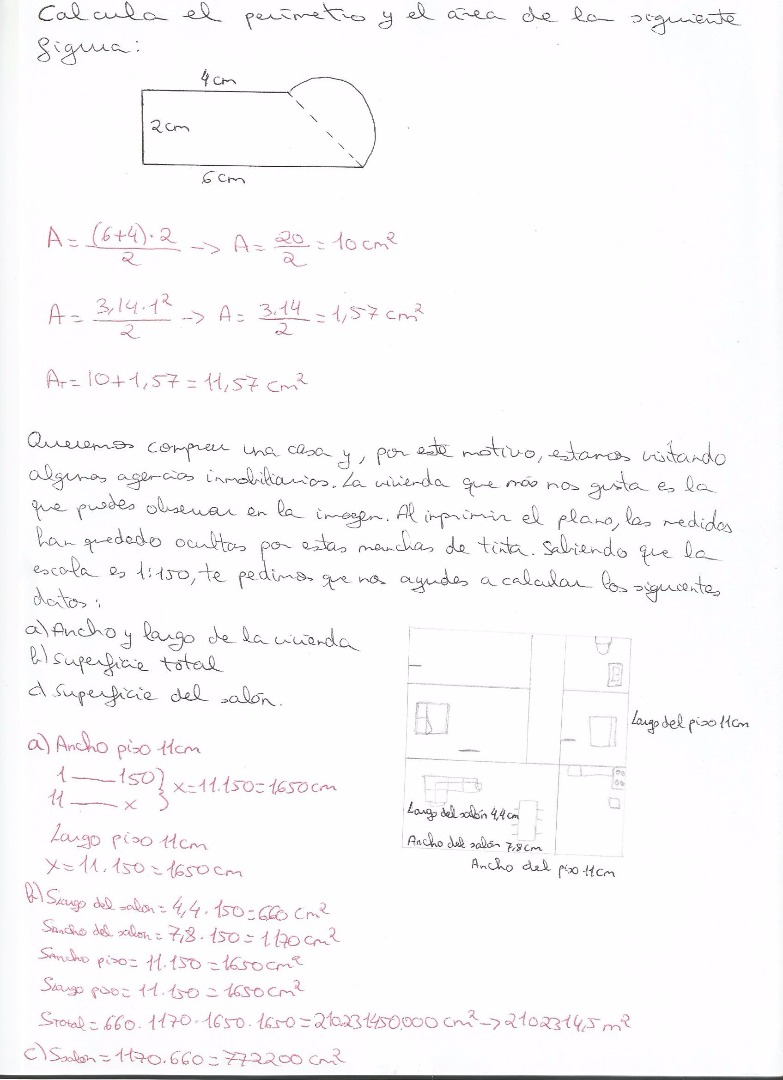 Calcula el perímetro y el área de la siguiente
figura:
4cm
2cm
6cm
A = (6+4)·2/2 -> A = 20/2 = 10cm²
A = 3,14·1²/2 -> A = 3.14/2 = 1,57 cm²
AT = 10+1,57 = 11,57 cm²
Queremos comprar una casa y, por este motivo, estamos visitando
algunas agencias inmobiliarias. La vivienda que más nos gusta es la
que puedes observar en la imagen. Al imprimir el plano, las medidas
han quedado ocultas por estas manchas de tinta. Sabiendo que la
escala es 1:150, te pedimos que nos ayudes a calcular los siguientes
datos:
a) Ancho y largo de la vivienda
b) Superficie total
c) Superficie del salón.
Largo del piso 11cm
Largo del salón 4,4cm
Ancho del salón 7,8cm
Ancho del piso 11cm
a) Ancho piso 11cm
1 — 150
11 — x } x = 11.150 = 1650cm
Largo piso 11cm
x = 11.150 = 1650 cm
b) Slargo del salón = 4,4.150 = 660 cm²
Sancho del salón = 7,8.150 = 1170 cm²
Sancho piso = 11.150 = 1650 cm²
Slargo piso = 11.150 = 1650 cm²
Stotal = 660.1170.1650.1650 = 210231450000 cm² -> 2102314,5 m²
c) Ssalón = 1170.660 = 772200 cm²